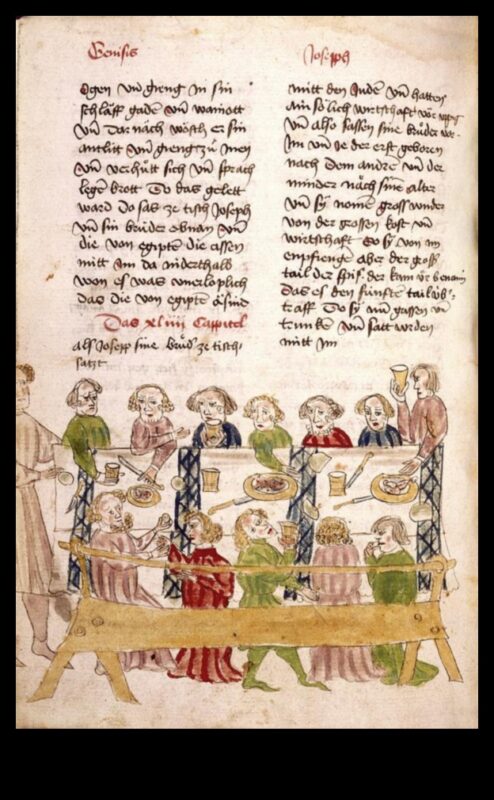 Genisis
Joseph
ogen vn̄ gieng in sin
schlaff gaden vn̄ wainott
vn̄ dar nach wosch er sin
antlitt vn̄ gieng zu inen
vn̄ verhůtt sich vn̄ sprach
legen brott Do das gelett
ward do sas ze tisch Joseph
vn̄ sin brüder ebnan vn̄
die von egipte die assen
mitt im da niderthalb
won es was vnerloplich
das die von egipte
Das xliiii Cappitel
als Josepp sine brüd ze tisch
satzt
mitt den Juden vn̄ hatten
ain sölich wirtschaft vor
vn̄ also sassen sine brüder vor
im vn̄ ie der erst geboren
nach dem andre vn̄ der
minder nach sine alter
vn̄ sy nomen gross wunder
von der grossen kost vn̄
wirtschaft do sy von im
enpfienge aber der gröst
tail der spis der kam benamin
das es den fünfte tail üb
traff Do sy nun grassen vn̄
trunke vn̄ satt wrden
mitt im